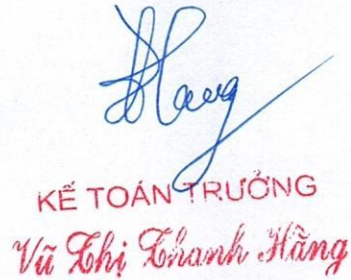 Hang
KẾ TOÁN TRƯỞNG
Vũ Thị Thanh Hằng